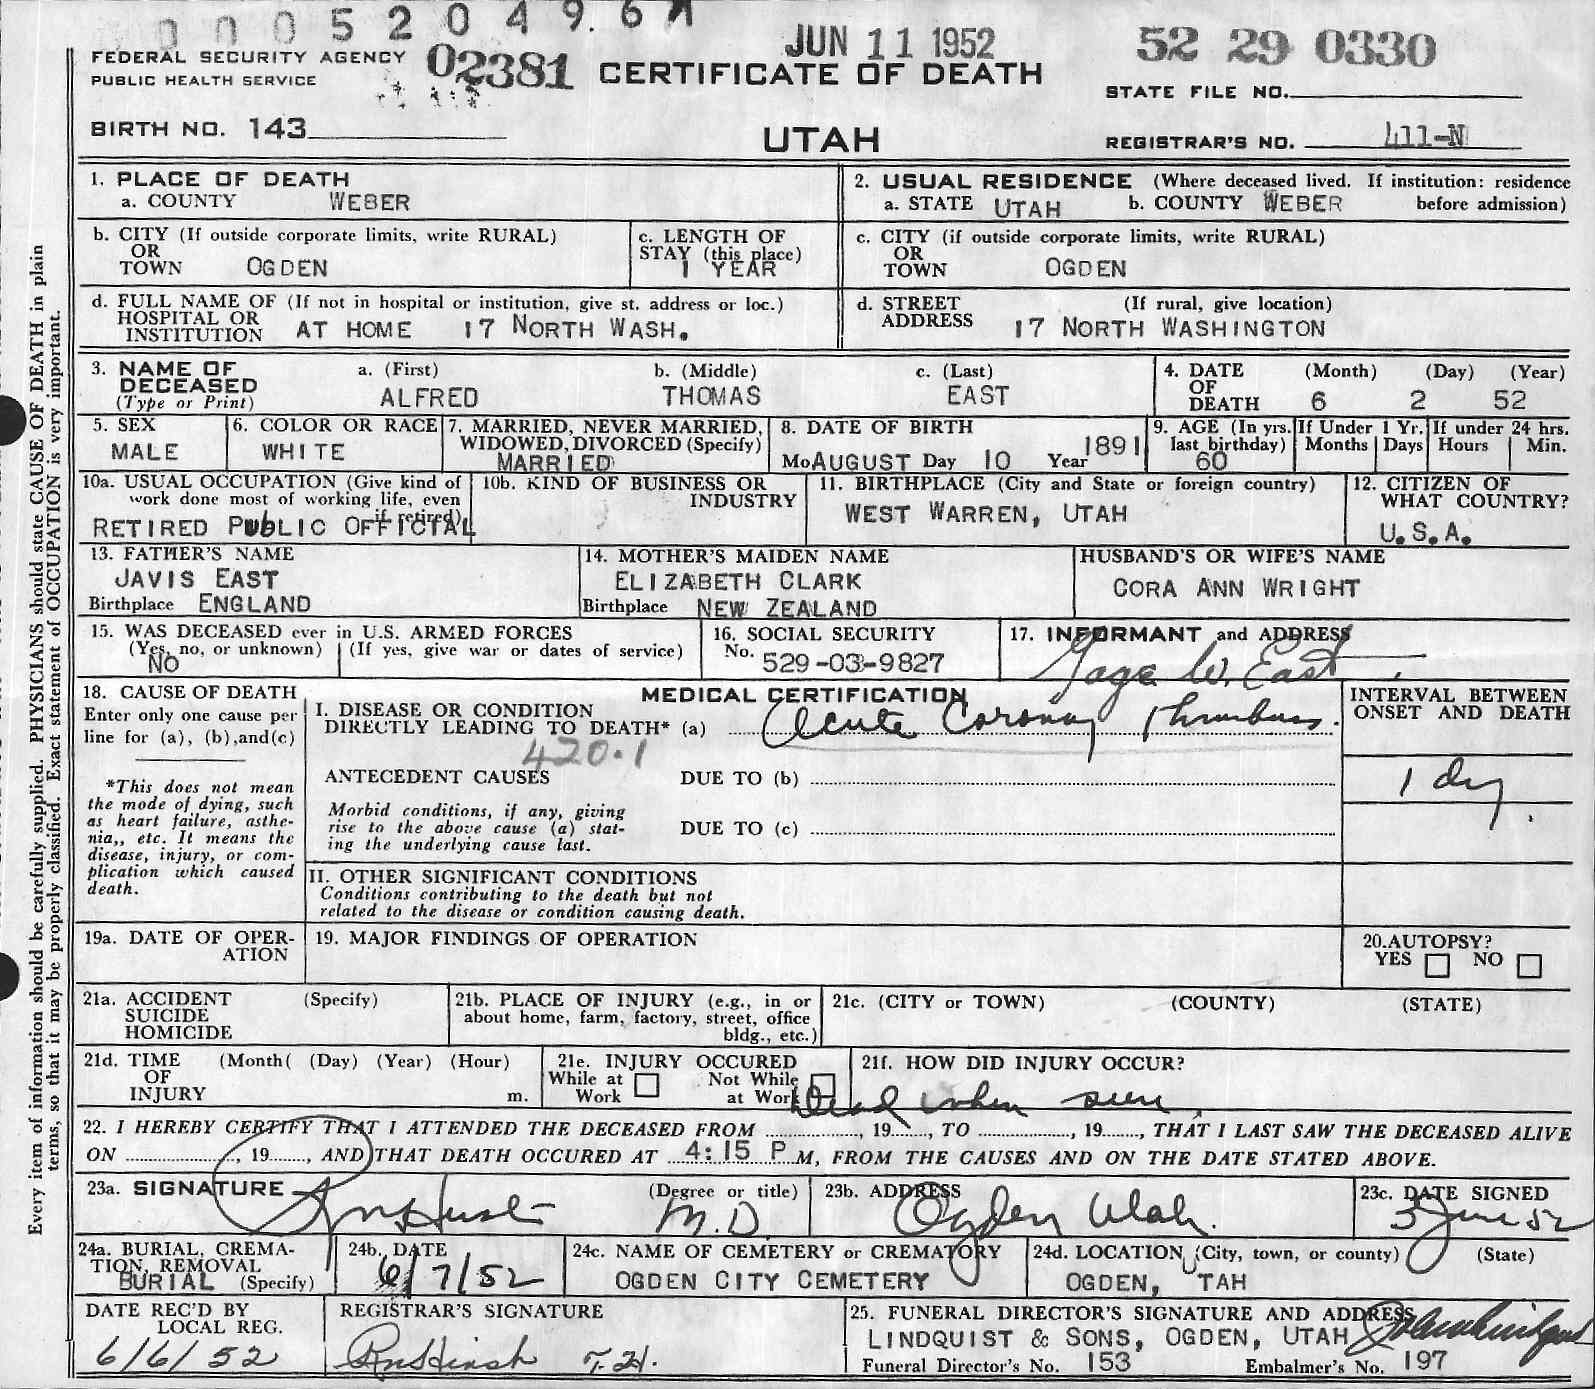 00052049.67
JUN 11 1952
52 29 0330
FEDERAL SECURITY AGENCY
PUBLIC HEALTH SERVICE
02381
CERTIFICATE OF DEATH
STATE FILE NO.
BIRTH NO. 143
UTAH
REGISTRAR'S NO. 411-N
Every item of information should be carefully supplied. PHYSICIANS should state CAUSE OF DEATH in plain
terms, so that it may be properly classified. Exact statement of OCCUPATION is very important.
1. PLACE OF DEATH
a. COUNTY WEBER
2. USUAL RESIDENCE (Where deceased lived. If institution: residence
a. STATE UTAH b. COUNTY WEBER before admission)
b. CITY (If outside corporate limits, write RURAL)
OR
TOWN OGDEN
c. LENGTH OF
STAY (this place)
1 YEAR
c. CITY (if outside corporate limits, write RURAL)
OR
TOWN OGDEN
d. FULL NAME OF (If not in hospital or institution, give st. address or loc.)
HOSPITAL OR
INSTITUTION AT HOME 17 NORTH WASH.
d. STREET (If rural, give location)
ADDRESS 17 NORTH WASHINGTON
3. NAME OF
DECEASED
(Type or Print)
a. (First)
ALFRED
b. (Middle)
THOMAS
c. (Last)
EAST
4. DATE (Month) (Day) (Year)
OF
DEATH 6 2 52
5. SEX
MALE
6. COLOR OR RACE
WHITE
7. MARRIED, NEVER MARRIED,
WIDOWED, DIVORCED (Specify)
MARRIED
8. DATE OF BIRTH
Mo AUGUST Day 10 Year 1891
9. AGE (In yrs.
last birthday)
60
If Under 1 Yr.
Months Days
If under 24 hrs.
Hours Min.
10a. USUAL OCCUPATION (Give kind of
work done most of working life, even
if retired)
RETIRED PUBLIC OFFICIAL
10b. KIND OF BUSINESS OR
INDUSTRY
11. BIRTHPLACE (City and State or foreign country)
WEST WARREN, UTAH
12. CITIZEN OF
WHAT COUNTRY?
U.S.A.
13. FATHER'S NAME
JAVIS EAST
Birthplace ENGLAND
14. MOTHER'S MAIDEN NAME
ELIZABETH CLARK
Birthplace NEW ZEALAND
HUSBAND'S OR WIFE'S NAME
CORA ANN WRIGHT
15. WAS DECEASED ever in U.S. ARMED FORCES
(Yes, no, or unknown) (If yes, give war or dates of service)
NO
16. SOCIAL SECURITY
No. 529-03-9827
17. INFORMANT and ADDRESS
Gage W. East
18. CAUSE OF DEATH
Enter only one cause per
line for (a), (b), and (c)
*This does not mean
the mode of dying, such
as heart failure, asthe-
nia,, etc. It means the
disease, injury, or com-
plication which caused
death.
MEDICAL CERTIFICATION
I. DISEASE OR CONDITION
DIRECTLY LEADING TO DEATH* (a) Acute Coronary Thrombosis.
420.1
ANTECEDENT CAUSES DUE TO (b)
Morbid conditions, if any, giving
rise to the above cause (a) stat-
ing the underlying cause last.
DUE TO (c)
II. OTHER SIGNIFICANT CONDITIONS
Conditions contributing to the death but not
related to the disease or condition causing death.
INTERVAL BETWEEN
ONSET AND DEATH
1 day.
19a. DATE OF OPER-
ATION
19. MAJOR FINDINGS OF OPERATION
20. AUTOPSY?
YES NO
21a. ACCIDENT (Specify)
SUICIDE
HOMICIDE
21b. PLACE OF INJURY (e.g., in or
about home, farm, factory, street, office
bldg., etc.)
21c. (CITY or TOWN) (COUNTY) (STATE)
21d. TIME (Month( (Day) (Year) (Hour)
OF
INJURY m.
21e. INJURY OCCURED
While at Not While
Work at Work
21f. HOW DID INJURY OCCUR?
Dead when seen
22. I HEREBY CERTIFY THAT I ATTENDED THE DECEASED FROM , 19 , TO , 19 , THAT I LAST SAW THE DECEASED ALIVE
ON , 19 , AND THAT DEATH OCCURED AT 4:15 P M, FROM THE CAUSES AND ON THE DATE STATED ABOVE.
23a. SIGNATURE (Degree or title)
M.D.
23b. ADDRESS
Ogden Utah.
23c. DATE SIGNED
5 June 52
24a. BURIAL, CREMA-
TION, REMOVAL
BURIAL (Specify)
24b. DATE
6/7/52
24c. NAME OF CEMETERY or CREMATORY
OGDEN CITY CEMETERY
24d. LOCATION (City, town, or county) (State)
OGDEN, UTAH
DATE REC'D BY
LOCAL REG.
6/6/52
REGISTRAR'S SIGNATURE
25. FUNERAL DIRECTOR'S SIGNATURE AND ADDRESS
LINDQUIST & SONS, OGDEN, UTAH
Funeral Director's No. 153 Embalmer's No. 197